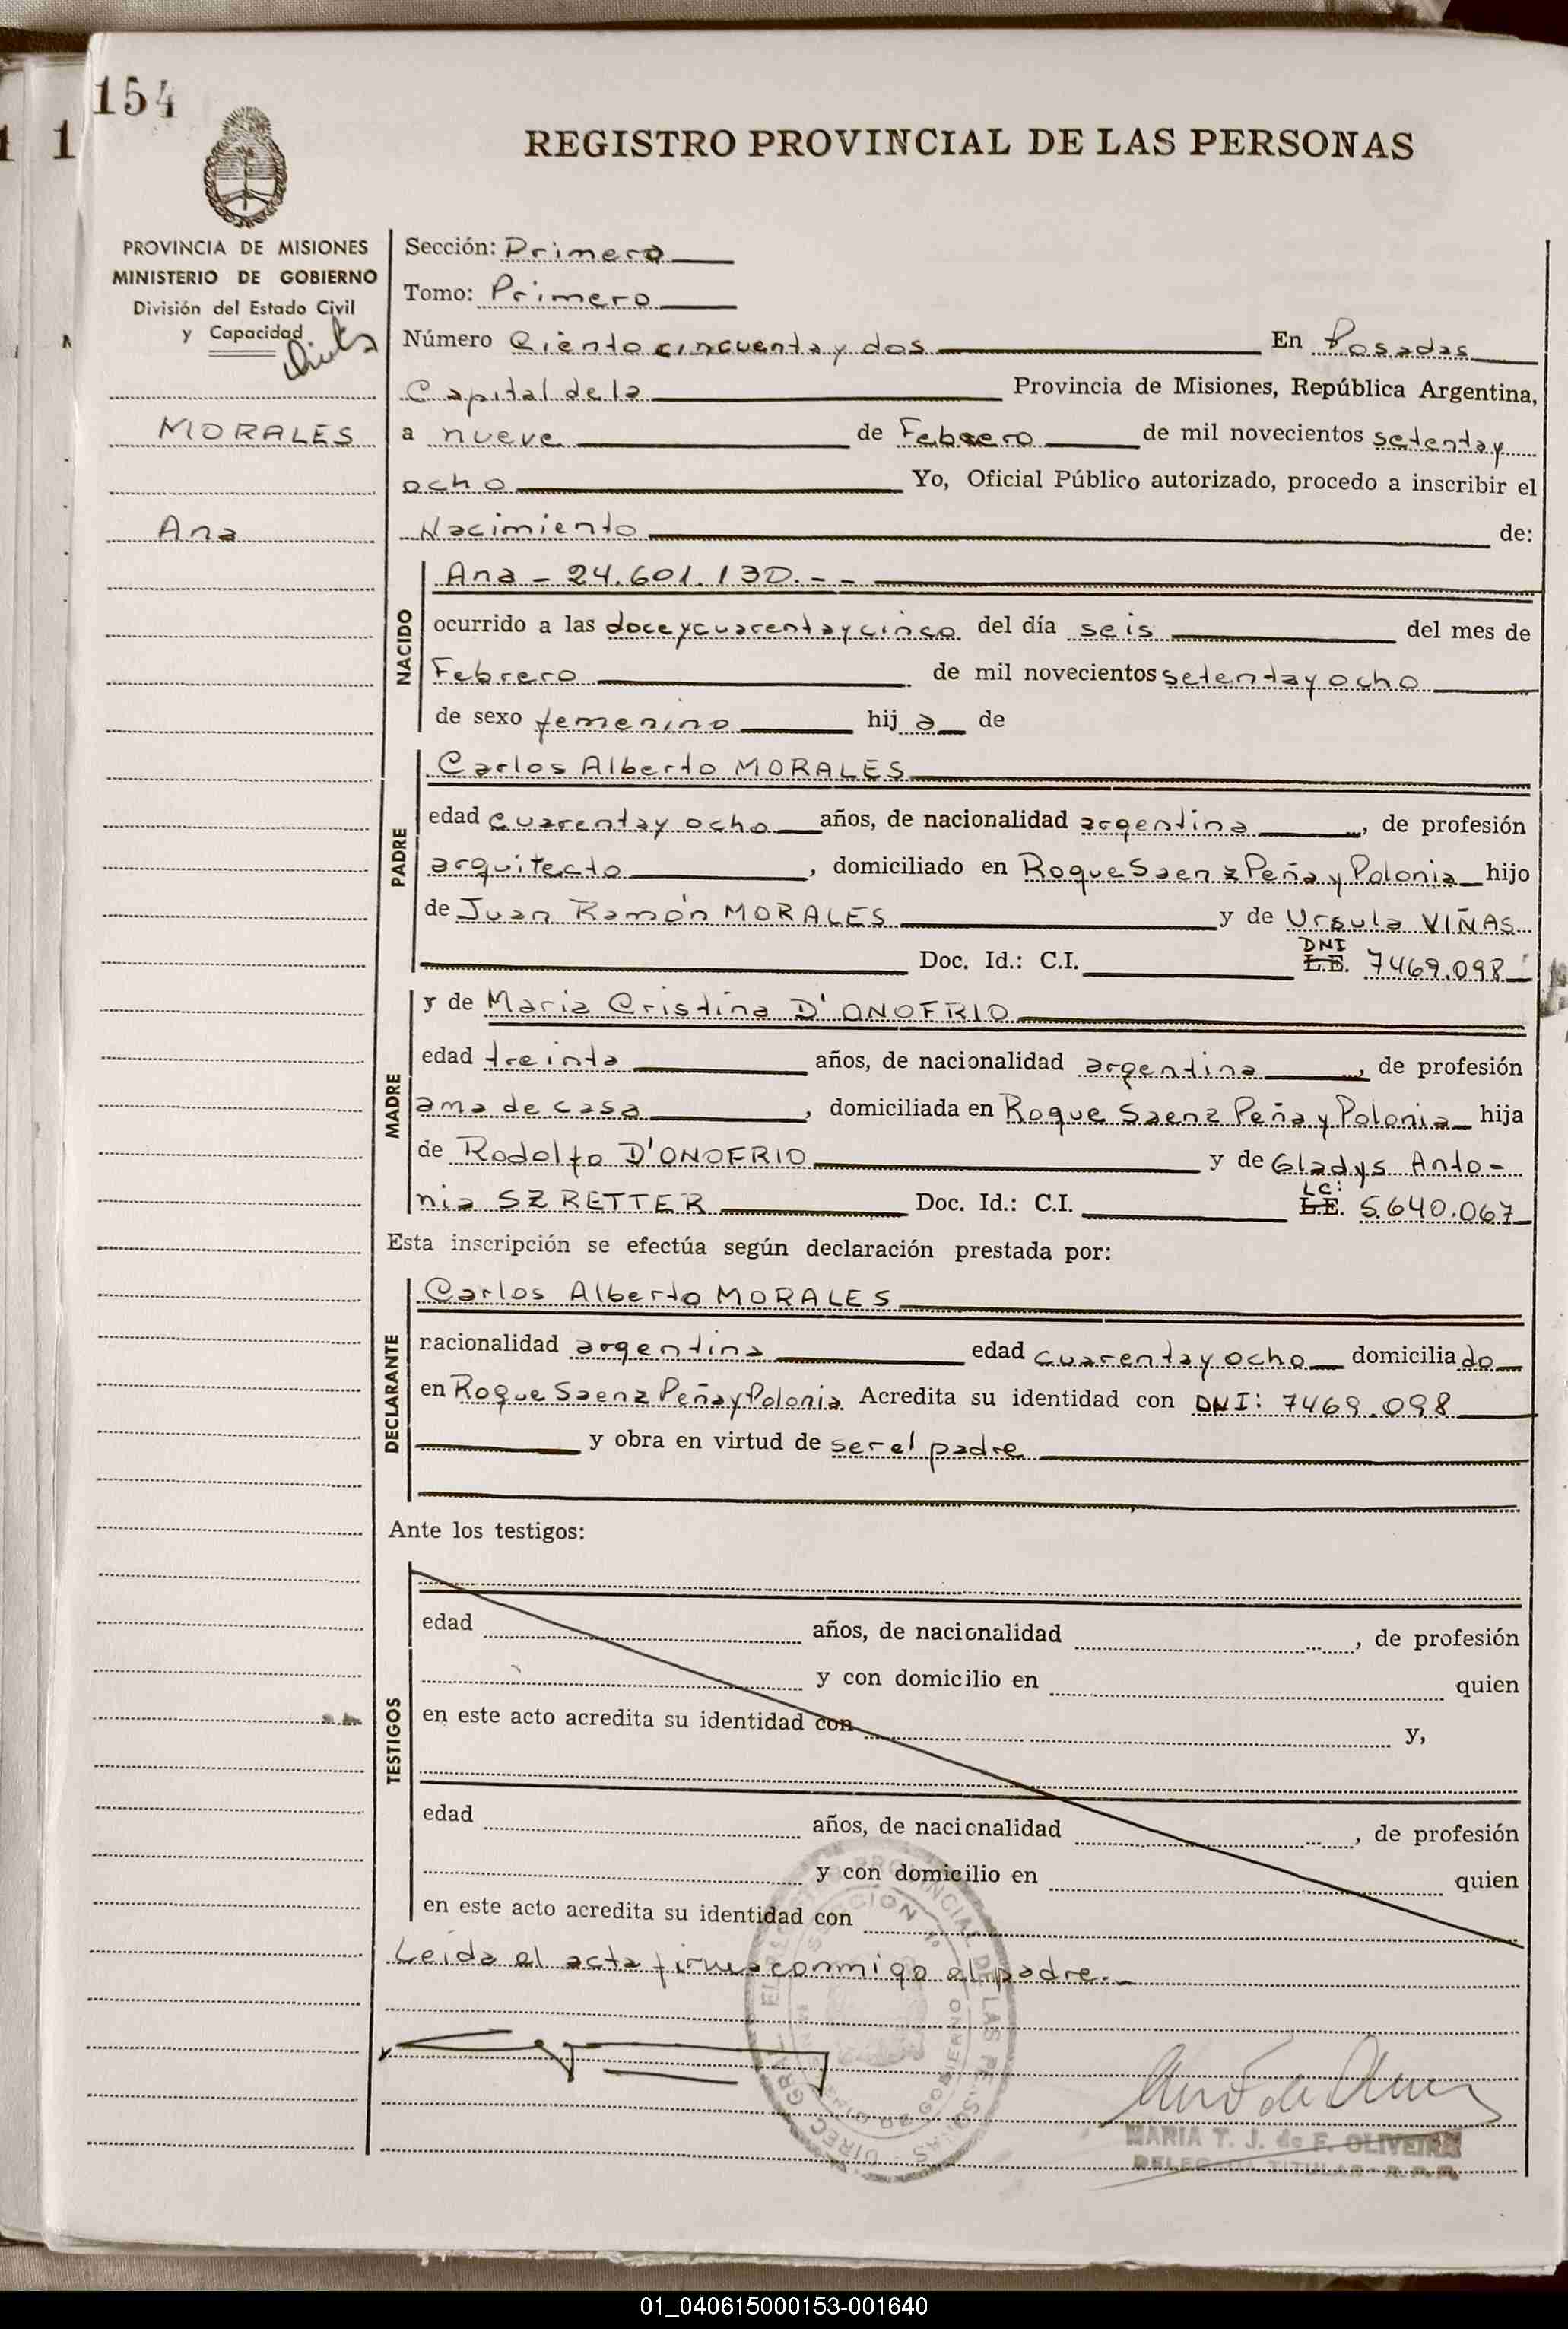 154
1 1
REGISTRO PROVINCIAL DE LAS PERSONAS
PROVINCIA DE MISIONES
MINISTERIO DE GOBIERNO
División del Estado Civil
y Capacidad
MORALES
Ana
Sección: Primera
Tomo: Primero
Número Ciento cincuenta y dos En Posadas
Capital de la Provincia de Misiones, República Argentina,
a nueve de Febrero de mil novecientos setenta y
ocho Yo, Oficial Público autorizado, procedo a inscribir el
Nacimiento de:
NACIDO
Ana - 24.601.130. - -
ocurrido a las doce y cuarenta y cinco del día seis del mes de
Febrero de mil novecientos setenta y ocho
de sexo femenino hij a de
PADRE
Carlos Alberto MORALES
edad cuarenta y ocho años, de nacionalidad argentina, de profesión
arquitecto, domiciliado en Roque Saenz Peña y Polonia hijo
de Juan Ramón MORALES y de Ursula VIÑAS
DNI
Doc. Id.: C.I. L.E. 7469.098
MADRE
y de Maria Cristina D'ONOFRIO
edad treinta años, de nacionalidad argentina, de profesión
ama de casa, domiciliada en Roque Saenz Peña y Polonia hija
de Rodolfo D'ONOFRIO y de Gladys Anto-
LC:
nia SZRETTER Doc. Id.: C.I. L.E. 5.640.067
Esta inscripción se efectúa según declaración prestada por:
DECLARANTE
Carlos Alberto MORALES
nacionalidad argentina edad cuarenta y ocho domicilia do
en Roque Saenz Peña y Polonia Acredita su identidad con DNI: 7469.098
y obra en virtud de ser el padre
Ante los testigos:
TESTIGOS
edad años, de nacionalidad , de profesión
y con domicilio en quien
en este acto acredita su identidad con y,
edad años, de nacionalidad , de profesión
y con domicilio en quien
en este acto acredita su identidad con
Leida el acta firma conmigo el padre.-
REGISTRO PROVINCIAL DE LAS PERSONAS - DIREC. GRAL.
SECCION 1ª
GOBIERNO
MARIA T. J. de F. OLIVEIRA
DELEGADA TITULAR - R. P. P.
01_040615000153-001640